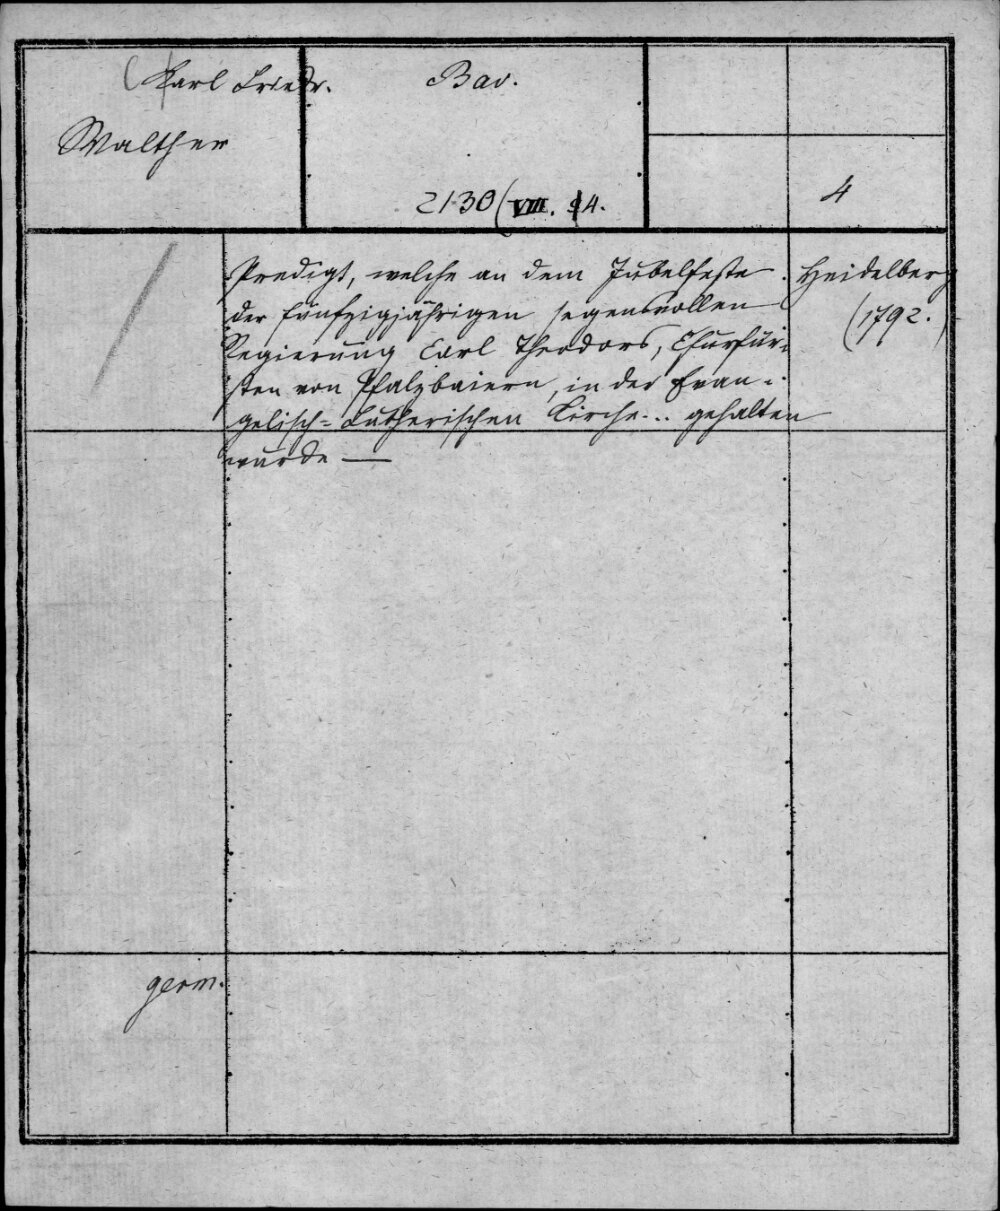 (Karl Friedr.
Walther
Bav.
2130(VIII. 14.
4
Predigt, welche an dem Jubelfeste
der fünfzigjährigen segensvollen
Regierung Carl Theodors, Churfür-
sten von Pfalzbaiern, in der Evan-
gelisch-Lutherischen Kirche... gehalten
wurde —
Heidelberg
(1792.)
germ.